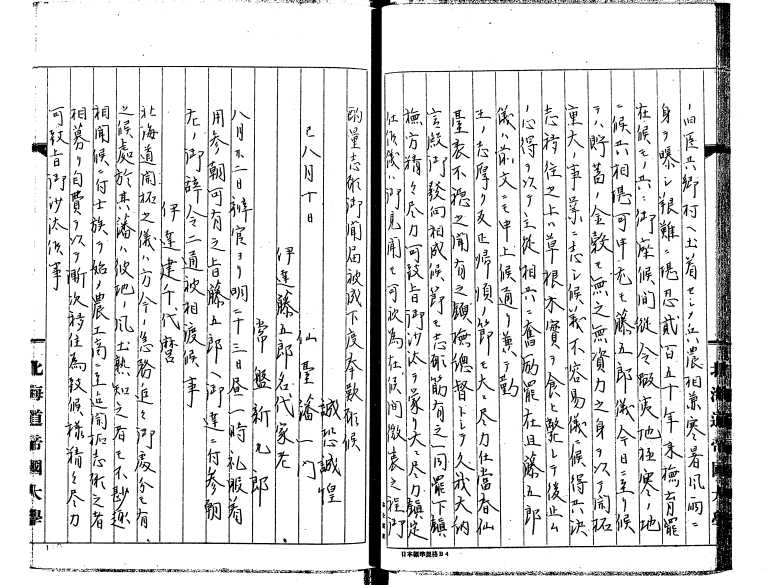 旧臣共郷村ヘ土着セシメ兵農相兼寒暑風雨ニ
身ヲ曝シ艱難ニ堪忍貳百五十年来撫育罷
在候モノ共ニ御座候間従令蝦夷地極寒ノ地
ニ候共相堪可申尤モ藤五郎儀今日ニ至リ候
テハ貯蓄ノ金穀モ無之無資力之身ヲ以テ開拓
重大ノ事業ニ志シ候義不容易儀ニ候得共決
志移住之上ハ草根木實ヲ食ヒ斃レテ後止ム
ノ心得ヲ以テ主従相共ニ奮励罷在且藤五郎
儀ハ前文ニモ申上候通リ兼テ勤
王ノ志厚ク反正帰順ノ節モ大ニ尽力仕當春仙
臺表不穏之聞有之鎮撫総督トシテ久我大納
言殿御發向相成候節モ志願筋有之一同罷下鎮
撫方精々尽力可致旨御沙汰ヲ蒙リ大ニ尽力鎮定
仕候儀ハ御見聞モ可被為在候間微衷之程御
酌量志願御聞届被成下度奉歎願候
誠恐誠惶
巳八月十日
仙臺藩一門
伊達藤五郎名代家老
常盤新九郎
八月廿二日辨官ヨリ明二十三日昼一時礼服着
用参朝可有之旨藤五郎ヘ御達ニ付参朝
左ノ御辞令二通被相渡候事
伊達建千代麿
北海道開拓之儀ハ方今ノ急務追々御處分モ有
之候處於其藩ハ彼地ノ風土熟知之者モ不尠趣
相聞候ニ付士族ヲ始ノ農工商ニ至迄開拓志願之者
相募リ自費ヲ以テ漸次移住為致候様精々尽力
可致旨御沙汰候事
北海道帝國大學
北海道帝國大學
日本標準規格B4